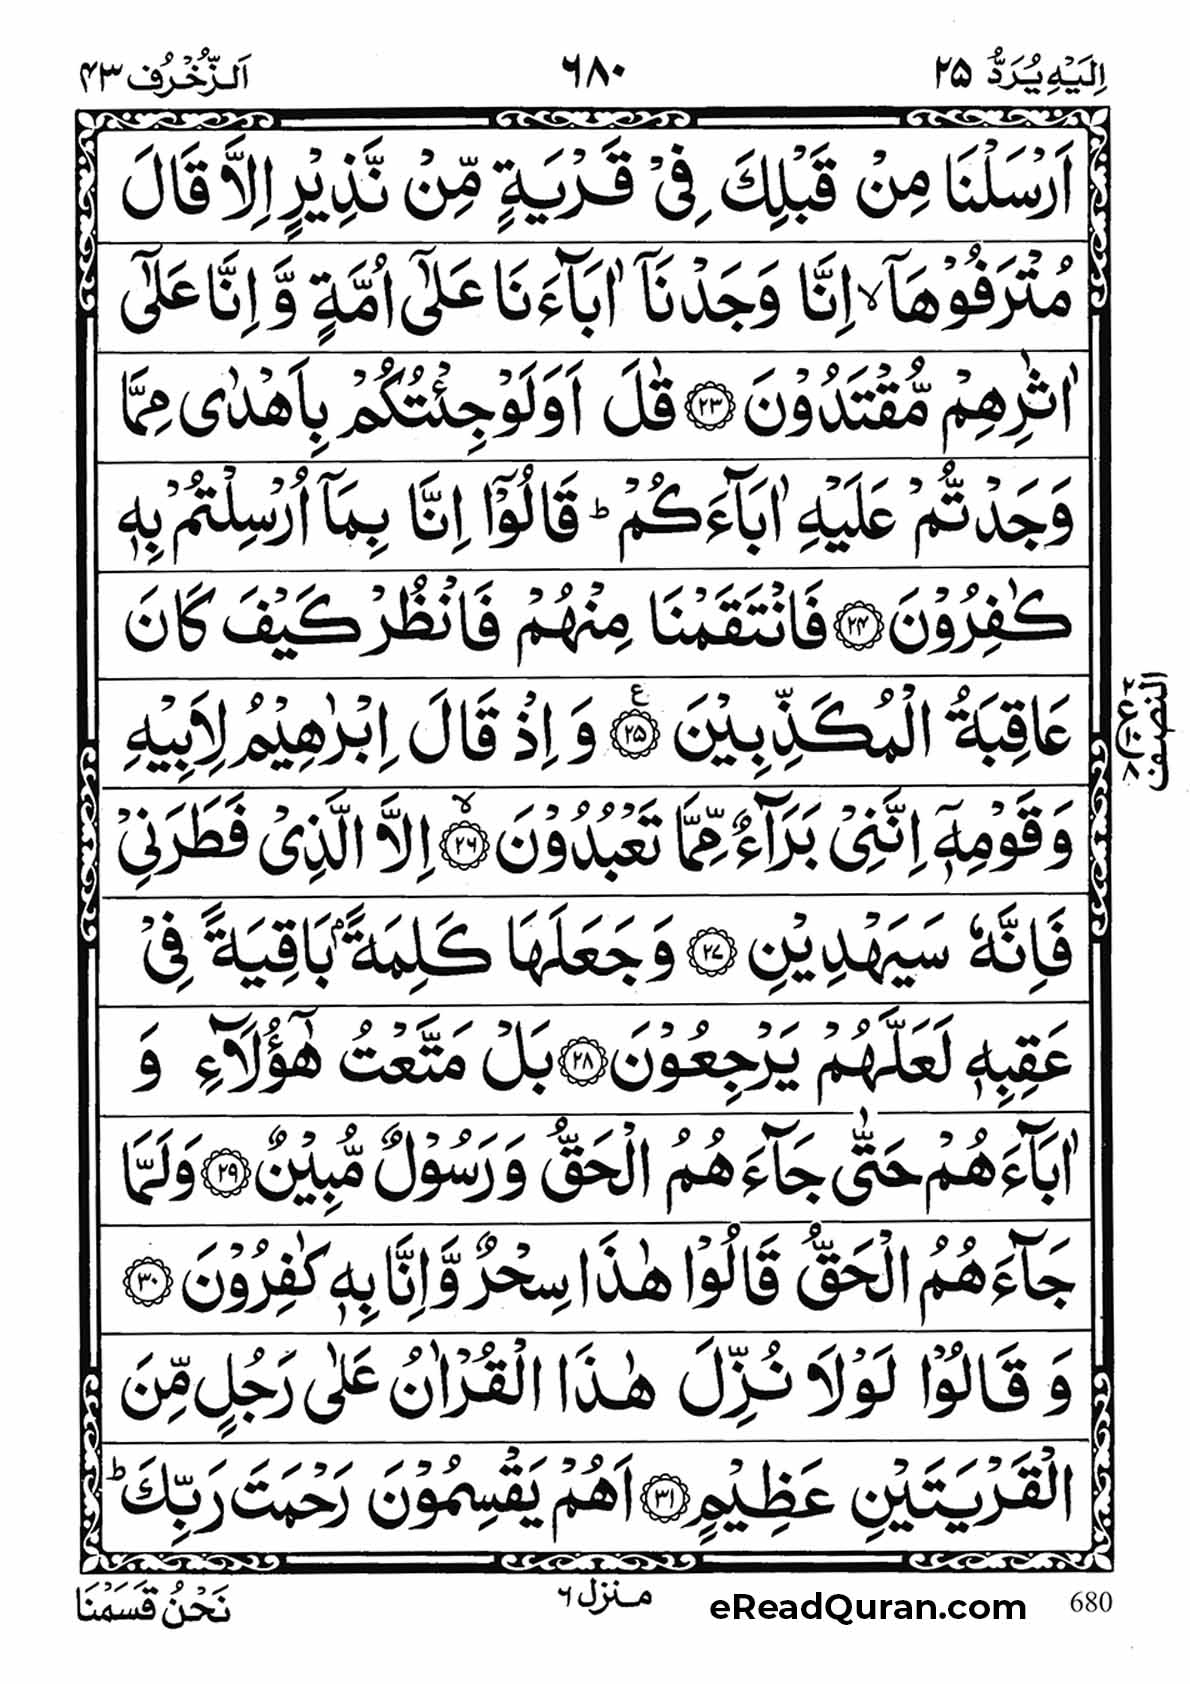 اِلَیْهِ یُرَدُّ ۲۵ ۶۸۰ اَلزُّخْرُف ۴۳
اَرْسَلْنَا مِنْ قَبْلِكَ فِیْ قَرْیَةٍ مِّنْ نَّذِیْرٍ اِلَّا قَالَ
مُتْرَفُوْهَاۤ ۙ اِنَّا وَجَدْنَاۤ اٰبَآءَنَا عَلٰۤی اُمَّةٍ وَّ اِنَّا عَلٰۤی
اٰثٰرِهِمْ مُّقْتَدُوْنَ ۝۲۳ قٰلَ اَوَلَوْ جِئْتُكُمْ بِاَهْدٰی مِمَّا
وَجَدْتُّمْ عَلَیْهِ اٰبَآءَكُمْ ؕ قَالُوْۤا اِنَّا بِمَاۤ اُرْسِلْتُمْ بِهٖ
كٰفِرُوْنَ ۝۲۴ فَانْتَقَمْنَا مِنْهُمْ فَانْظُرْ كَیْفَ كَانَ
عَاقِبَةُ الْمُكَذِّبِیْنَ ۝۲۵ ع وَ اِذْ قَالَ اِبْرٰهِیْمُ لِاَبِیْهِ
النصف
ع
۲
۱۰
۸
وَ قَوْمِهٖۤ اِنَّنِیْ بَرَآءٌ مِّمَّا تَعْبُدُوْنَ ۝۲۶ ۙ اِلَّا الَّذِیْ فَطَرَنِیْ
فَاِنَّهٗ سَیَهْدِیْنِ ۝۲۷ وَ جَعَلَهَا كَلِمَةًۢ بَاقِیَةً فِیْ
عَقِبِهٖ لَعَلَّهُمْ یَرْجِعُوْنَ ۝۲۸ بَلْ مَتَّعْتُ هٰۤؤُلَآءِ وَ
اٰبَآءَهُمْ حَتّٰی جَآءَهُمُ الْحَقُّ وَ رَسُوْلٌ مُّبِیْنٌ ۝۲۹ وَ لَمَّا
جَآءَهُمُ الْحَقُّ قَالُوْا هٰذَا سِحْرٌ وَّ اِنَّا بِهٖ كٰفِرُوْنَ ۝۳۰
وَ قَالُوْا لَوْلَا نُزِّلَ هٰذَا الْقُرْاٰنُ عَلٰی رَجُلٍ مِّنَ
الْقَرْیَتَیْنِ عَظِیْمٍ ۝۳۱ اَهُمْ یَقْسِمُوْنَ رَحْمَتَ رَبِّكَ ؕ
نَحْنُ قَسَمْنَا منزل ۶ eReadQuran.com 680